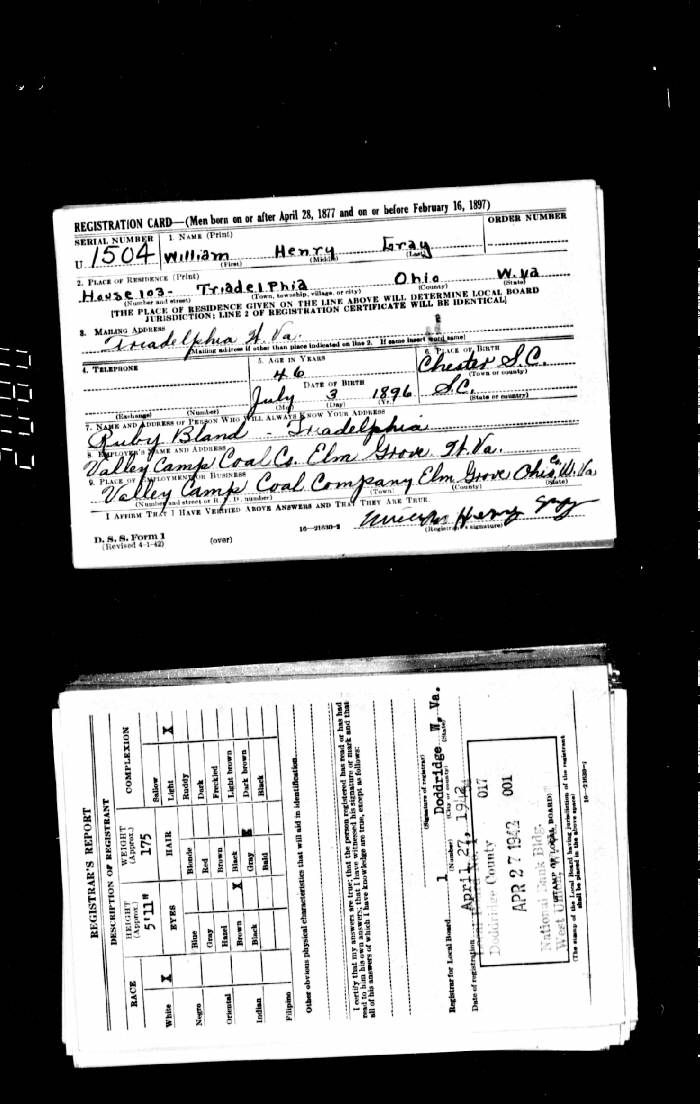 REGISTRATION CARD—(Men born on or after April 28, 1877 and on or before February 16, 1897)
SERIAL NUMBER 1. NAME (Print) ORDER NUMBER
U 1504 William Henry Gray
(First) (Middle) (Last)
2. PLACE OF RESIDENCE (Print)
House 103- Triadelphia Ohio W.Va
(Number and street) (Town, township, village, or city) (County) (State)
[THE PLACE OF RESIDENCE GIVEN ON THE LINE ABOVE WILL DETERMINE LOCAL BOARD
JURISDICTION; LINE 2 OF REGISTRATION CERTIFICATE WILL BE IDENTICAL]
3. MAILING ADDRESS
Triadelphia W. Va.
[Mailing address if other than place indicated on line 2. If same insert word same]
4. TELEPHONE 5. AGE IN YEARS 6. PLACE OF BIRTH
46 Chester S.C.
(Town or county)
DATE OF BIRTH
July 3 1896 S.C.
(Exchange) (Number) (Mo.) (Day) (Yr.) (State or country)
7. NAME AND ADDRESS OF PERSON WHO WILL ALWAYS KNOW YOUR ADDRESS
Ruby Bland - Triadelphia
8. EMPLOYER'S NAME AND ADDRESS
Valley Camp Coal Co. Elm Grove W. Va.
9. PLACE OF EMPLOYMENT OR BUSINESS
Valley Camp Coal Company Elm Grove Ohio Co. W. Va
(Number and street or R. F. D. number) (Town) (County) (State)
I AFFIRM THAT I HAVE VERIFIED ABOVE ANSWERS AND THAT THEY ARE TRUE.
William Henry Gray
D. S. S. Form 1 16—21630-2 (Registrant's signature)
(Revised 4-1-42) (over)
REGISTRAR'S REPORT
DESCRIPTION OF REGISTRANT
RACE HEIGHT (Approx.) WEIGHT (Approx.) COMPLEXION
5'11" 175
EYES HAIR
White X Blue Blonde Sallow
Light X
Negro Gray Red Ruddy
Dark
Oriental Hazel Brown Freckled
Brown X Black Light brown
Indian Black Gray X Dark brown
Bald Black
Filipino
Other obvious physical characteristics that will aid in identification
I certify that my answers are true; that the person registered has read or has had
read to him his own answers; that I have witnessed his signature or mark and that
all of his answers of which I have knowledge are true, except as follows:
(Signature of registrar)
Registrar for Local Board 1 Doddridge W. Va.
(Number) (City or county) (State)
Date of registration April 27, 1942
017
Doddridge County 001
APR 27 1942
National Bank Bldg.
(STAMP OF LOCAL BOARD)
(The stamp of the Local Board having jurisdiction of the registrant
shall be placed in the above space)